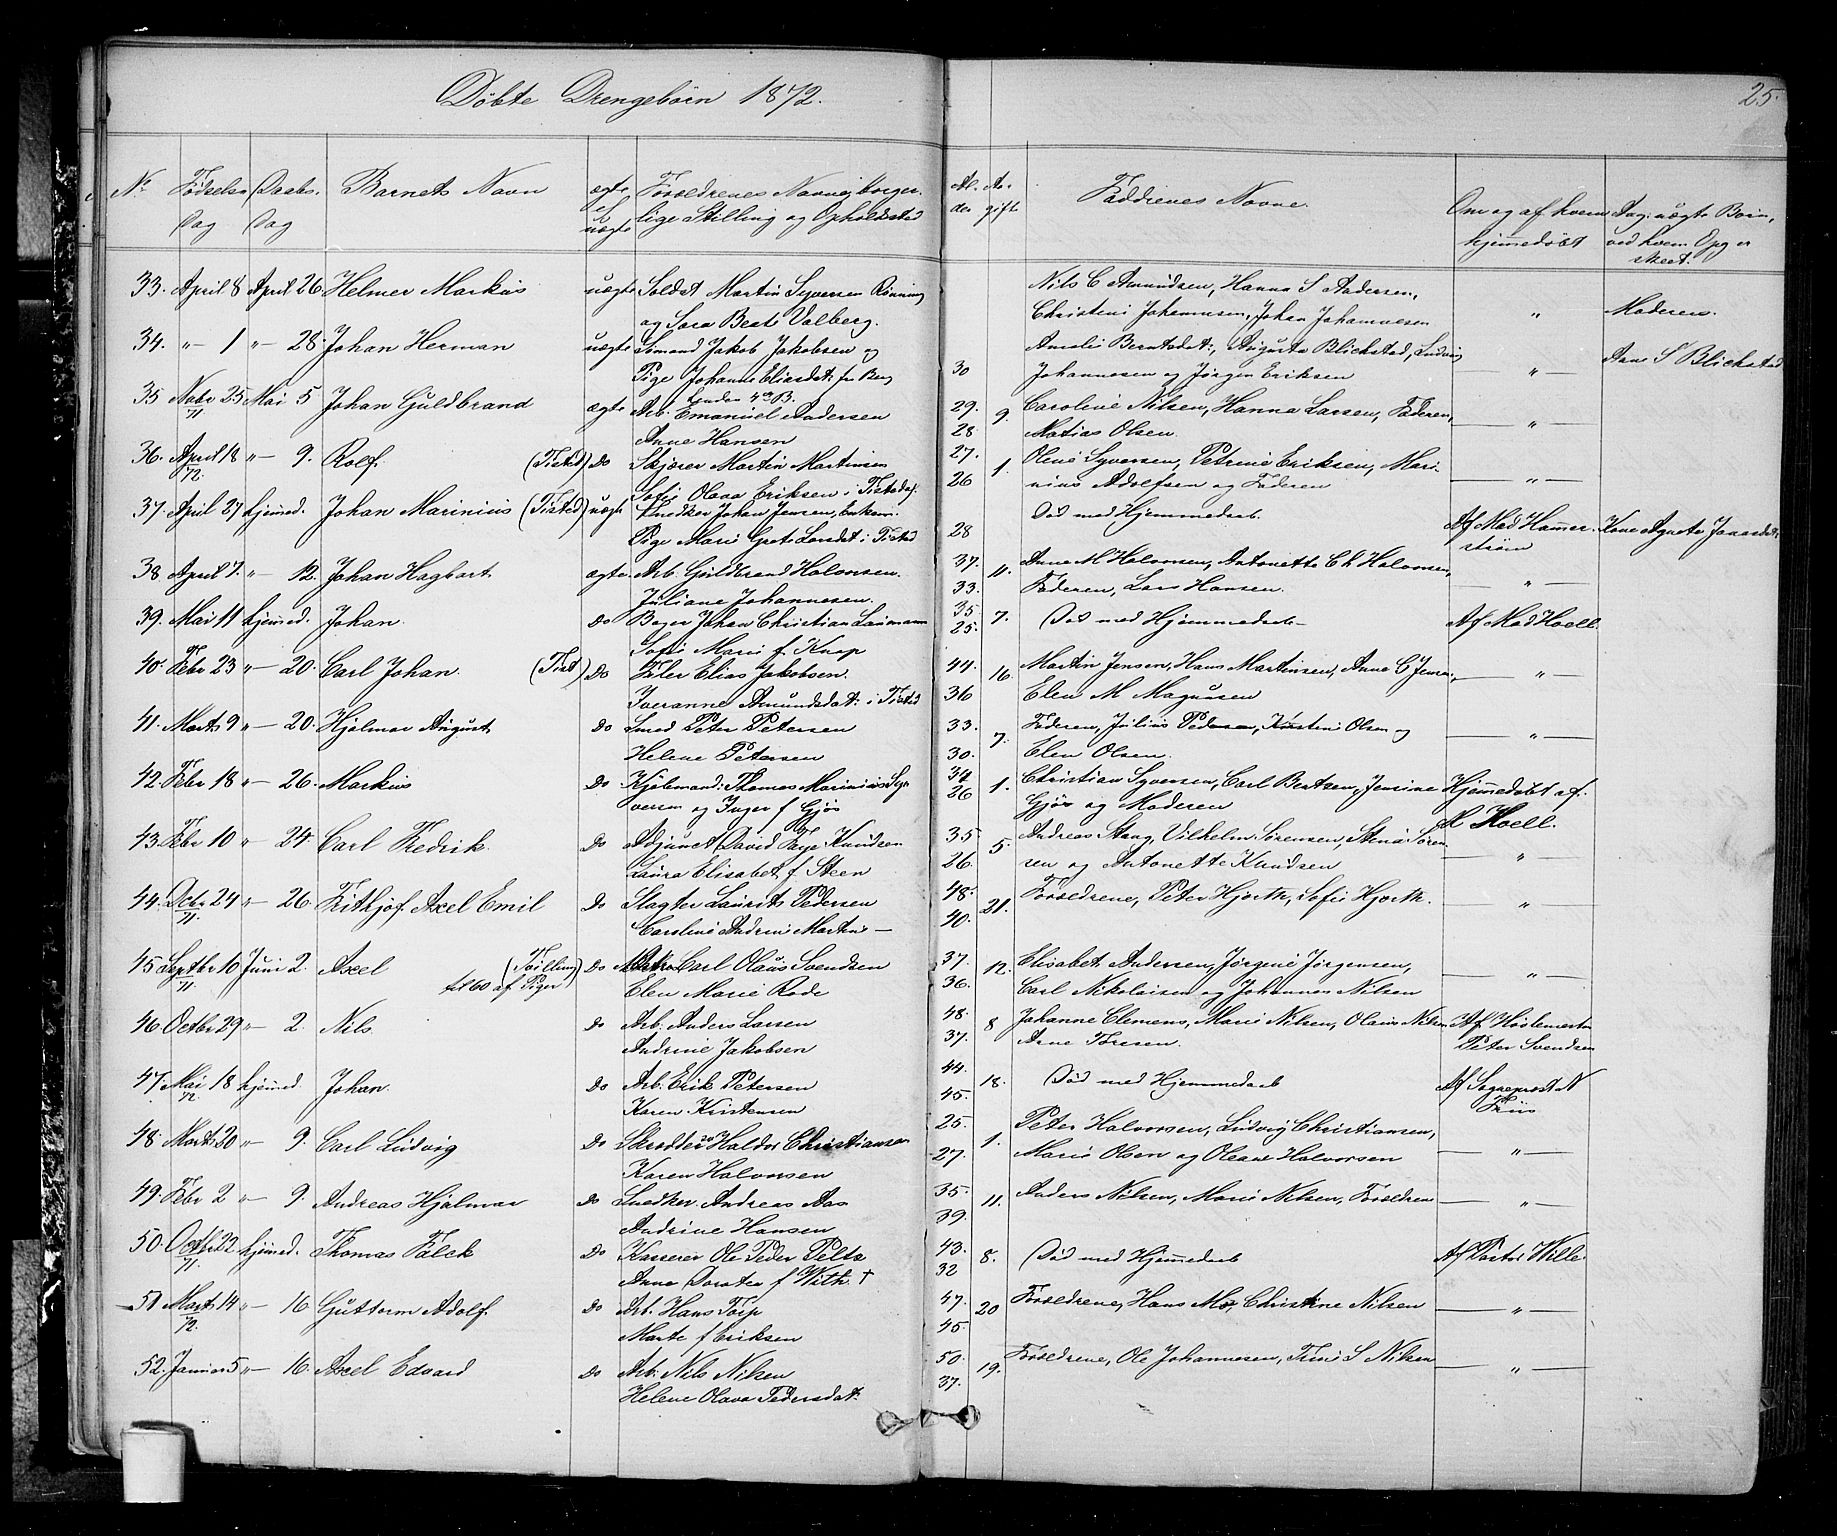 Döbte Drengebörn 1872.
25.
No Födsels Daabs Barnets Navn ægte Forældrenes Navne, borger
Dag Dag el. uægte lige Stilling og Opholdssted
Al. Aar
der gift Faddrenes Navne. Om og af hvem Ang. uægte Börn,
hjemmedöbt ved hvem Opg. er
skeet.
33. April 8 April 26 Helmer Markus uægte Soldat Martin Syversen Rönning
og Sara Beate Valberg.
Nils C Amundsen, Hanna S Andersen,
Christine Johannesen, Johan Johannesen " Moderen.
34. " 1 " 28. Johan Herman uægte Sömand Jakob Jakobsen og
Pige Johanne Eliasdat: fra Berg
30 Amalie Berntsdat:, Augusta Blichstad, Ludvig
Johannesen og Jörgen Eriksen — " — Ane S Blichstad
35 Novbr 25 Mai 5 Johan Guldbrand ægte Arb. Emanuel Andersen
71 Anne Hansen
29. 9. Caroline Nilsen, Hanna Larsen, Faderen,
28. Matias Olsen. — " —
36. April 18 " — 9. Rolf. (Tistedal) Do Skjærer Martin Martinsen
72. Sofie Olava Eriksen i Tistedal.
27. 1. Oline Syversen, Petrine Eriksen, Mari-
26 nius Adolfsen og Faderen — " —
37. April 27 hjemed. Johan Marinius (Tisted) uægte Snedker Johan Jensen,
Pige Marie Grete Larsdat i Tisted
28 Död med Hjemmedaab. Af Mad Hammer- Kone Agnete Jonasdat:
ström
38 April 7. " — 12. Johan Hagbart ægte Arb. Guldbrand Halvorsen.
Juliane Johannesen.
37. 11. Anne M Halvorsen, Antonette Ch Halvorsen,
33. Faderen, Lars Hansen. — " —
39. Mai 11 hjemed. Johan. Do Bager Johan Christian Laumann
Sofie Marie f. Knap
35 7. Död med Hjemmedaab — Af Mad Hoell.
25.
40. Febr 23 " — 20. Carl Johan. (Tist) Do Filer Elias Jakobsen.
Iveranne Amundsdat: i Tisted
44. 16. Martin Jensen, Hans Martinsen, Anne C Jensen,
36 Elen M Magnusen — " —
41. Marts 9 " — 20. Hjalmar August Do Smed Peter Petersen
Helene Petersen
33. 7. Faderen, Julius Pedersen, Kirstine Olsen og
30. Elen Olsen. — " —
42. Febr 18 " — 26. Markus Do Kjöbmand: Thomas Marinius Sy-
versen og Inger f Gjös
34 1. Christian Syversen, Carl Berntsen, Jensine Hjemedöbt af.
26 Gjös og Moderen Hoell.
43. Febr 10 " — 24. Carl Fredrik. Do Adjunct David Faye Knudsen
Laura Elisabet f. Steen
35. 5. Andreas Stang, Vilhelm Sörensen, Stina Sören-
26. sen og Antonette Knudsen — " —
44. Octbr 24 " — 26. Frithjof Axel Emil Do Slagter Laurits Pedersen
71. Caroline Andrine Martins —
48. 21. Forældrene, Peter Hjorth, Sofie Hjorth.
40. — " —
45 Septbr 10 Juni 2. Axel (Tvilling Do Carl Olaus Svendsen
71. til 60 af Piger) Elen Marie Rode
37. 12. Elisabet Andersen, Jörgine Jörgensen,
36. Carl Nikolaisen og Johannes Nilsen — " —
46 Octbr 29 " — 2. Nils. Do Arb. Anders Larsen
Andrine Jakobsen
48. 8 Johanne Clemens, Marie Nilsen, Olaus Nilsen Af Höslemester
37. Arne Toresen. Peter Svendsen
47. Mai 18 hjemed. Johan. Do Arb. Erik Petersen
72. Karen Kristensen
44. 18. Död med Hjemmedaab Af Sogneprest N
45. Friis
48 Marts 20 " — 9. Carl Ludvig Do Skrædder Haldor Christiansen
Karen Halvorsen
25. 1. Peter Halvorsen, Ludvig Christiansen,
27. Marie Olsen og Oleane Halvorsen — " —
49. Febr 2 " — 9. Andreas Hjalmar Do Snedker. Andreas Aas
Andrine Hansen
35. 11. Anders Nilsen, Marie Nilsen, Forældrene — " —
39.
50. Octbr 22 hjemed. Thomas Falck Do Kasserer Ole Peder Peltz
71. Anna Dorotea f With. †
43. 8. Död med Hjemedaab Af Pastor Wille.
32
51 Marts 14 " — 16 Guttorm Adolf. Do Arb. Hans Torp
72. Marte f Eriksen
47. 20 Forældrene, Hans Mo, Christine Nilsen — " —
45.
52. Januar 5 " — 16. Axel Edvard Do Arb. Nils Nilsen
Helene Olava Pedersdat:
50. 19. Forældrene, Ole Johannesen, Trine S Nilsen — " —
37.